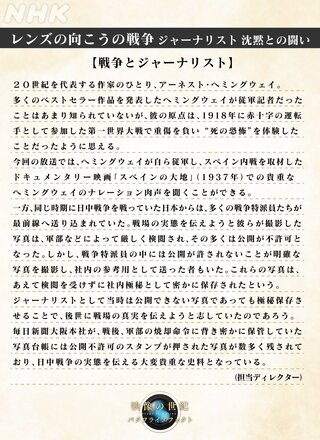 NHK
レンズの向こうの戦争 ジャーナリスト 沈黙との闘い
【戦争とジャーナリスト】
２０世紀を代表する作家のひとり、アーネスト・ヘミングウェイ。
多くのベストセラー作品を発表したヘミングウェイが従軍記者だった
ことはあまり知られていないが、彼の原点は、1918年に赤十字の運転
手として参加した第一世界大戦で重傷を負い “死の恐怖”を体験した
ことだったように思える。
今回の放送では、ヘミングウェイが自ら従軍し、スペイン内戦を取材した
ドキュメンタリー映画「スペインの大地」(1937年)での貴重な
ヘミングウェイのナレーション肉声を聞くことができる。
一方、同じ時期に日中戦争を戦っていた日本からは、多くの戦争特派員たちが
最前線へ送り込まれていた。戦場の実態を伝えようと彼らが撮影した
写真は、軍部などによって厳しく検閲され、その多くは公開が不許可と
なった。しかし、戦争特派員の中には公開が許されないことが明確な
写真を撮影し、社内の参考用として送った者もいた。これらの写真は、
あえて検閲を受けずに社内極秘として密かに保存されたという。
ジャーナリストとして当時は公開できない写真であっても極秘保存さ
せることで、後世に戦場の真実を伝えようと志していたのであろう。
毎日新聞大阪本社が、戦後、軍部の焼却命令に背き密かに保管していた
写真台帳には公開不許可のスタンプが押された写真が数多く残されて
おり、日中戦争の実態を伝える大変貴重な史料となっている。
(担当ディレクター)
映像の世紀
バタフライエフェクト